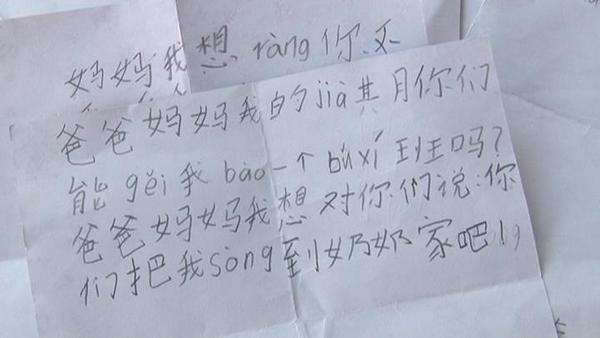 妈妈我想ràng你不
爸爸妈妈我的jià其月你们
能gěi我bào一个bǔxí班吗?
爸爸妈妈我想对你们说:你
们把我sòng到奶奶家吧!